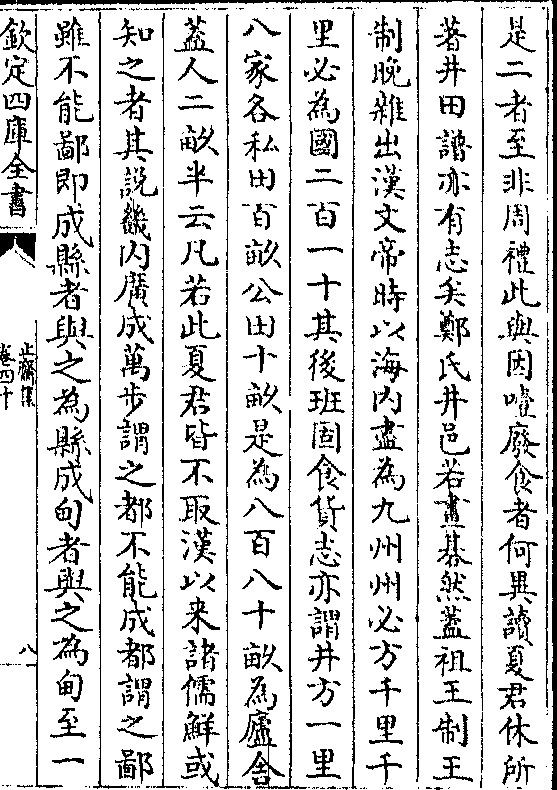 是二者至非周禮此與因噎廢食者何異讀夏君休所
著井田譜亦有志矣鄭氏井邑若畫棊然蓋祖王制王
制晚雜出漢文帝時以海内盡為九州州必方千里千
里必為國二百一十其後班固食貨志亦謂井方一里
八家各私田百畝公田十畝是為八百八十畝為廬舍
蓋人二畝半云凡若此夏君皆不取漢以来諸儒鮮或
知之者其說畿内廣成萬步謂之都不能成都謂之鄙
雖不能鄙即成縣者與之為縣成甸者與之為甸至一
欽定四庫全書
止齋集
卷四十
八